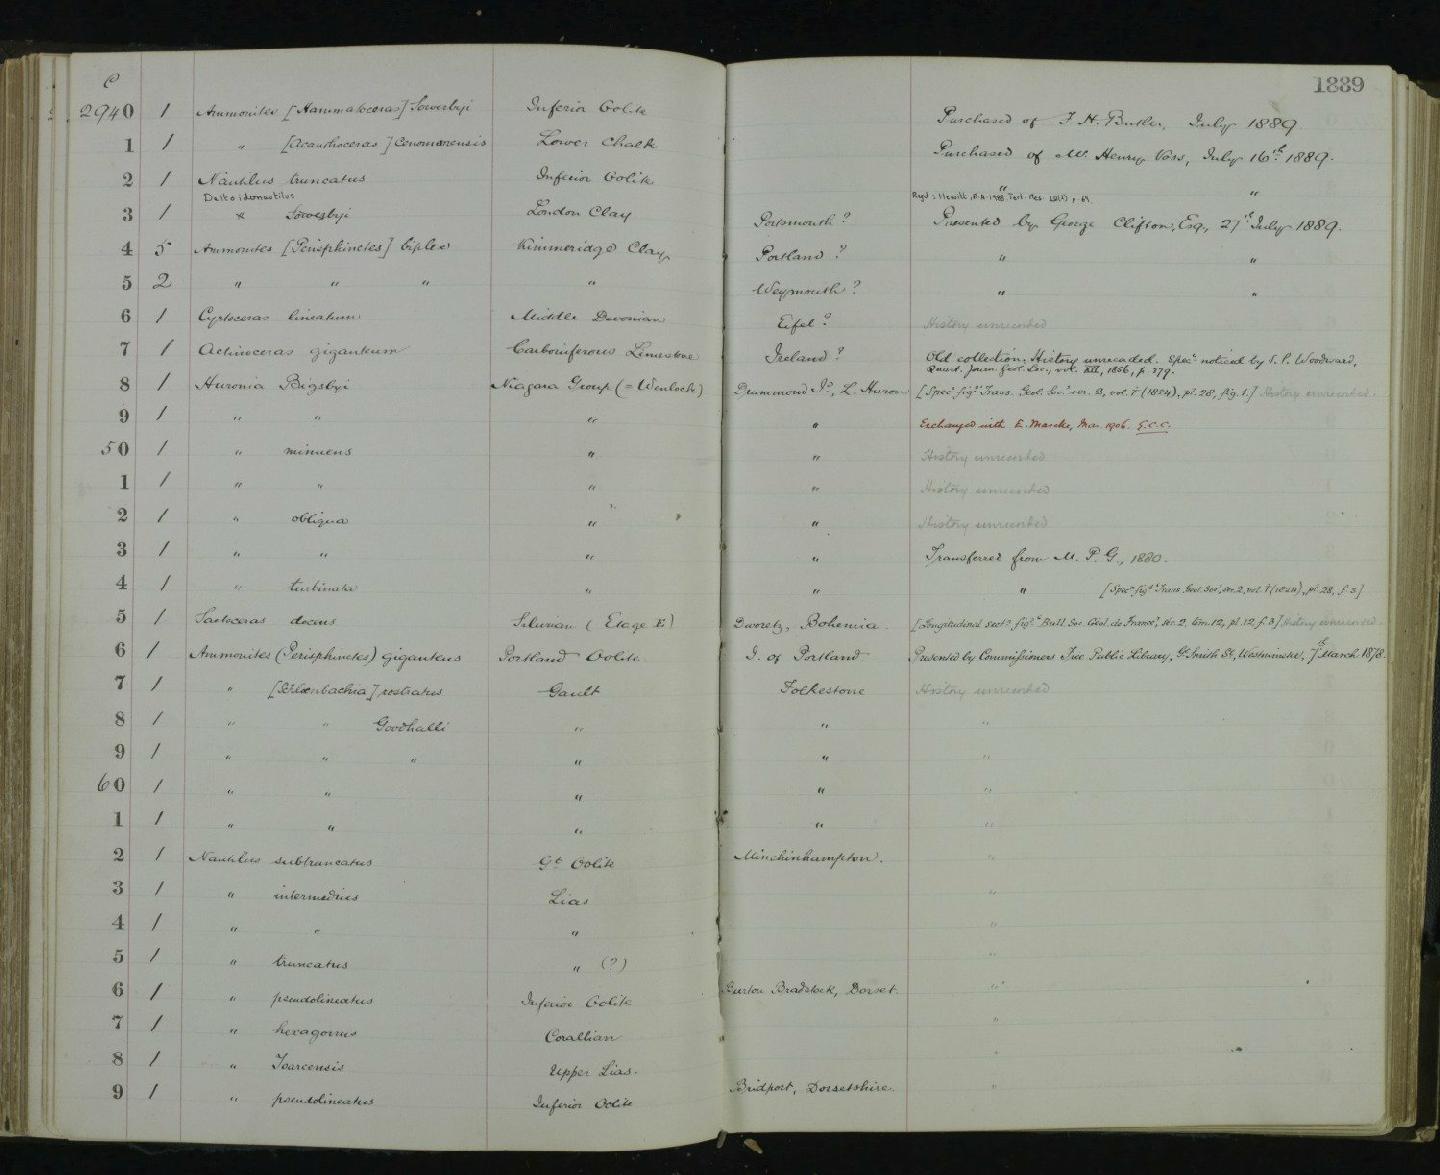 C 1889
2940 1 Ammonites [Hammatoceras] Sowerbyi Inferior Oolite Purchased of F. H. Butler, July 1889.
1 1 " [Acanthoceras] Cenomanensis Lower Chalk Purchased of Mr. Henry Vors, July 16th 1889.
2 1 Nautilus truncatus Inferior Oolite " "
Deltoidonautilus
3 1 " Sowerbyi London Clay Portsmouth? Presented by George Clifton, Esq., 27th July 1889.
4 5 Ammonites [Perisphinctes] biplex Kimmeridge Clay Portland? " "
5 2 " " " " Weymouth? " "
6 1 Cyrtoceras lineatum Middle Devonian Eifel? History unrecorded
7 1 Actinoceras giganteum Carboniferous Limestone Ireland? Old collection. History unrecorded. Specn. noticed by S. P. Woodward,
Quart. Journ. Geol. Soc., vol. XII, 1856, p. 379.
8 1 Huronia Bigsbyi Niagara Group (= Wenlock) Drummond Id., L. Huron [Specn. figd. Trans. Geol. Soc. ser. 2, vol. I (1824), pl. 28, fig. 1.] History unrecorded.
9 1 " " " " Exchanged with E. Mascke, Mar. 1906. G.C.C.
50 1 " minuens " " History unrecorded
1 1 " " " " History unrecorded
2 1 " obliqua " " History unrecorded
3 1 " " " " Transferred from M. P. G., 1880.
4 1 " turbinata " " " [Specn. figd. Trans. Geol. Soc., ser. 2, vol. I (1824), pl. 28, f. 3]
5 1 Sactoceras docens Silurian (Etage E) Dworetz, Bohemia. [Longitudinal sectn. figd. Bull. Soc. Géol. de France, sér. 2, tom. 12, pl. 12, f. 3] History unrecorded.
6 1 Ammonites (Perisphinctes) giganteus Portland Oolite I. of Portland Presented by Commissioners Free Public Library, Gt. Smith St., Westminster, 7th March 1878.
7 1 " [Schloenbachia] rostratus Gault Folkestone History unrecorded
8 1 " " Goodhalli " " "
9 1 " " " " " "
60 1 " " " " "
1 1 " " " " "
2 1 Nautilus subtruncatus Gt. Oolite Minchinhampton. "
3 1 " intermedius Lias "
4 1 " " " "
5 1 " truncatus " (?) "
6 1 " pseudolineatus Inferior Oolite Burton Bradstock, Dorset. "
7 1 " hexagonus Corallian "
8 1 " Toarcensis Upper Lias. "
9 1 " pseudolineatus Inferior Oolite Bridport, Dorsetshire. "